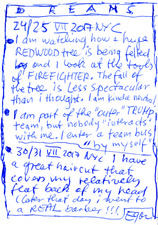 DREAMS
24/25 VII 2017 NYC
I am watching how a huge
REDWOOD tree is being felled
and I look at the
of FIREFIGHTER. The fall of
the tree is less spectacular
than I thought. I am kinda
I am part of the "outer" TRUMP
team, but nobody "interacts"
with me. I enter a team bus
by myself"
30/31 VII 2017 NYC I have
a great haircut that
covers my relatively
flat back of my head
(later that day I went to
a REAL barber!!!)